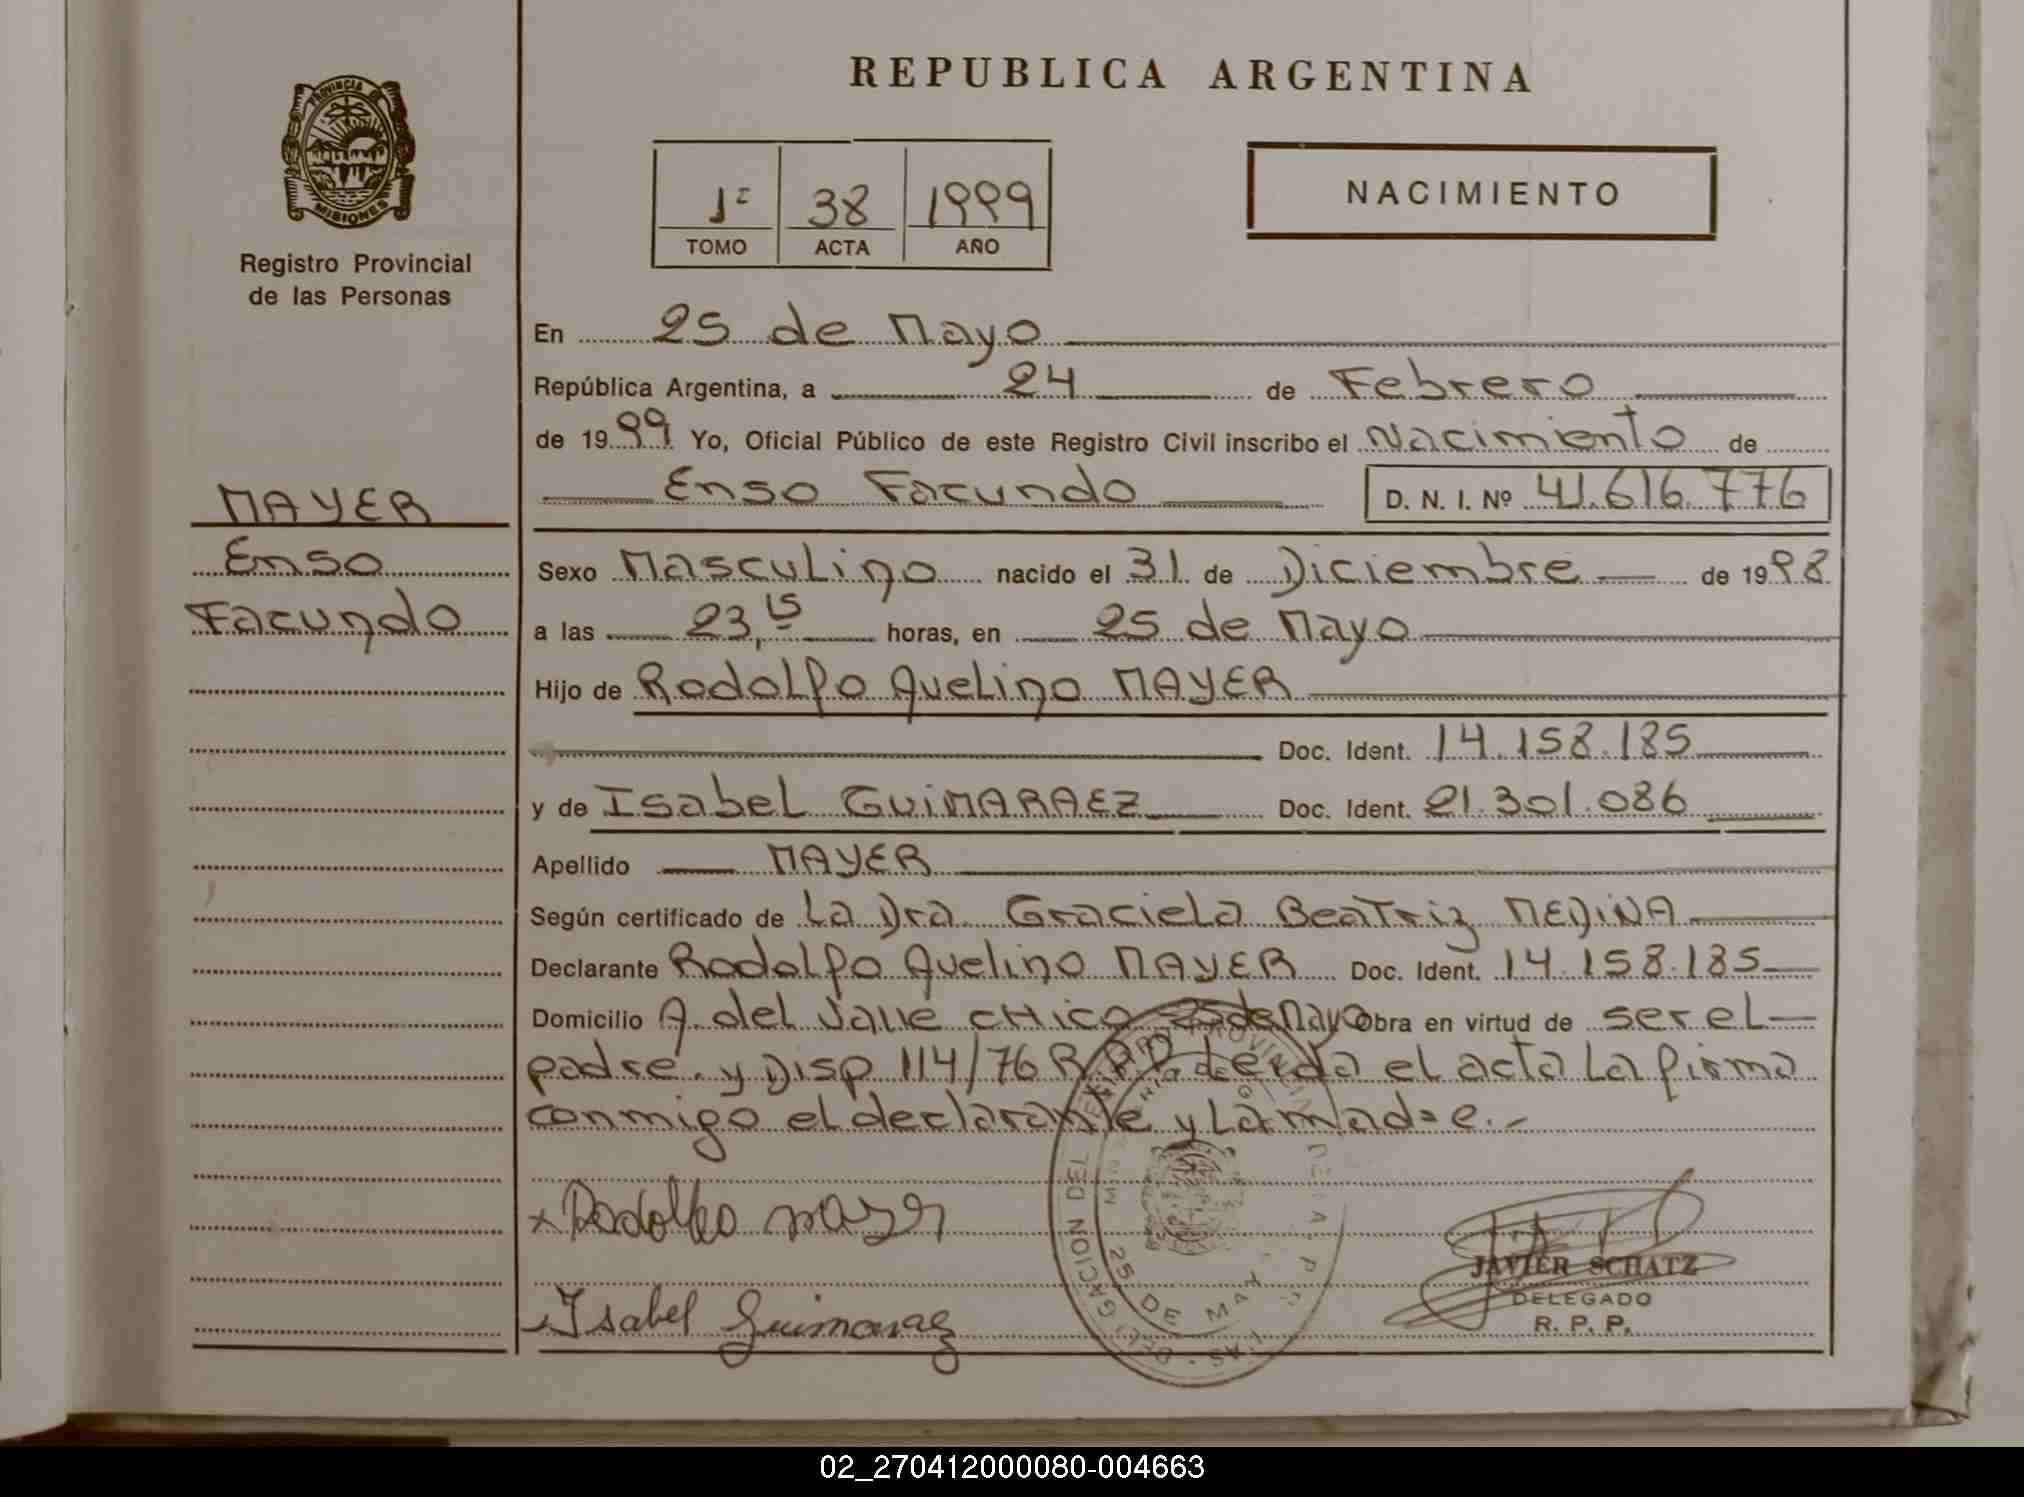 REPUBLICA ARGENTINA
PROVINCIA DE
MISIONES
Registro Provincial
de las Personas
1º 38 1999
TOMO ACTA AÑO
NACIMIENTO
MAYER
Enso
Facundo
En 25 de Mayo
República Argentina, a 24 de Febrero
de 1999 Yo, Oficial Público de este Registro Civil inscribo el Nacimiento de
Enso Facundo D. N. I. Nº 41.616.776
Sexo Masculino nacido el 31 de Diciembre de 1998
a las 23,15 horas, en 25 de Mayo
Hijo de Rodolfo Avelino MAYER
Doc. Ident. 14.158.185
y de Isabel GUiMARAEZ Doc. Ident. 21.301.086
Apellido MAYER
Según certificado de La Dra. Graciela Beatriz MEDiNA
Declarante Rodolfo Avelino MAYER Doc. Ident. 14.158.185
Domicilio A. del Valle CHico 25 de Mayo Obra en virtud de ser el
padre. y Disp 114/76 R.P.P. Leída el acta La firma
conmigo el declarante y La madre.-
x Rodolfo mayer
x Isabel Guimaraez
25 DE MAYO
JAVIER SCHATZ
DELEGADO
R. P. P.
02_270412000080-004663